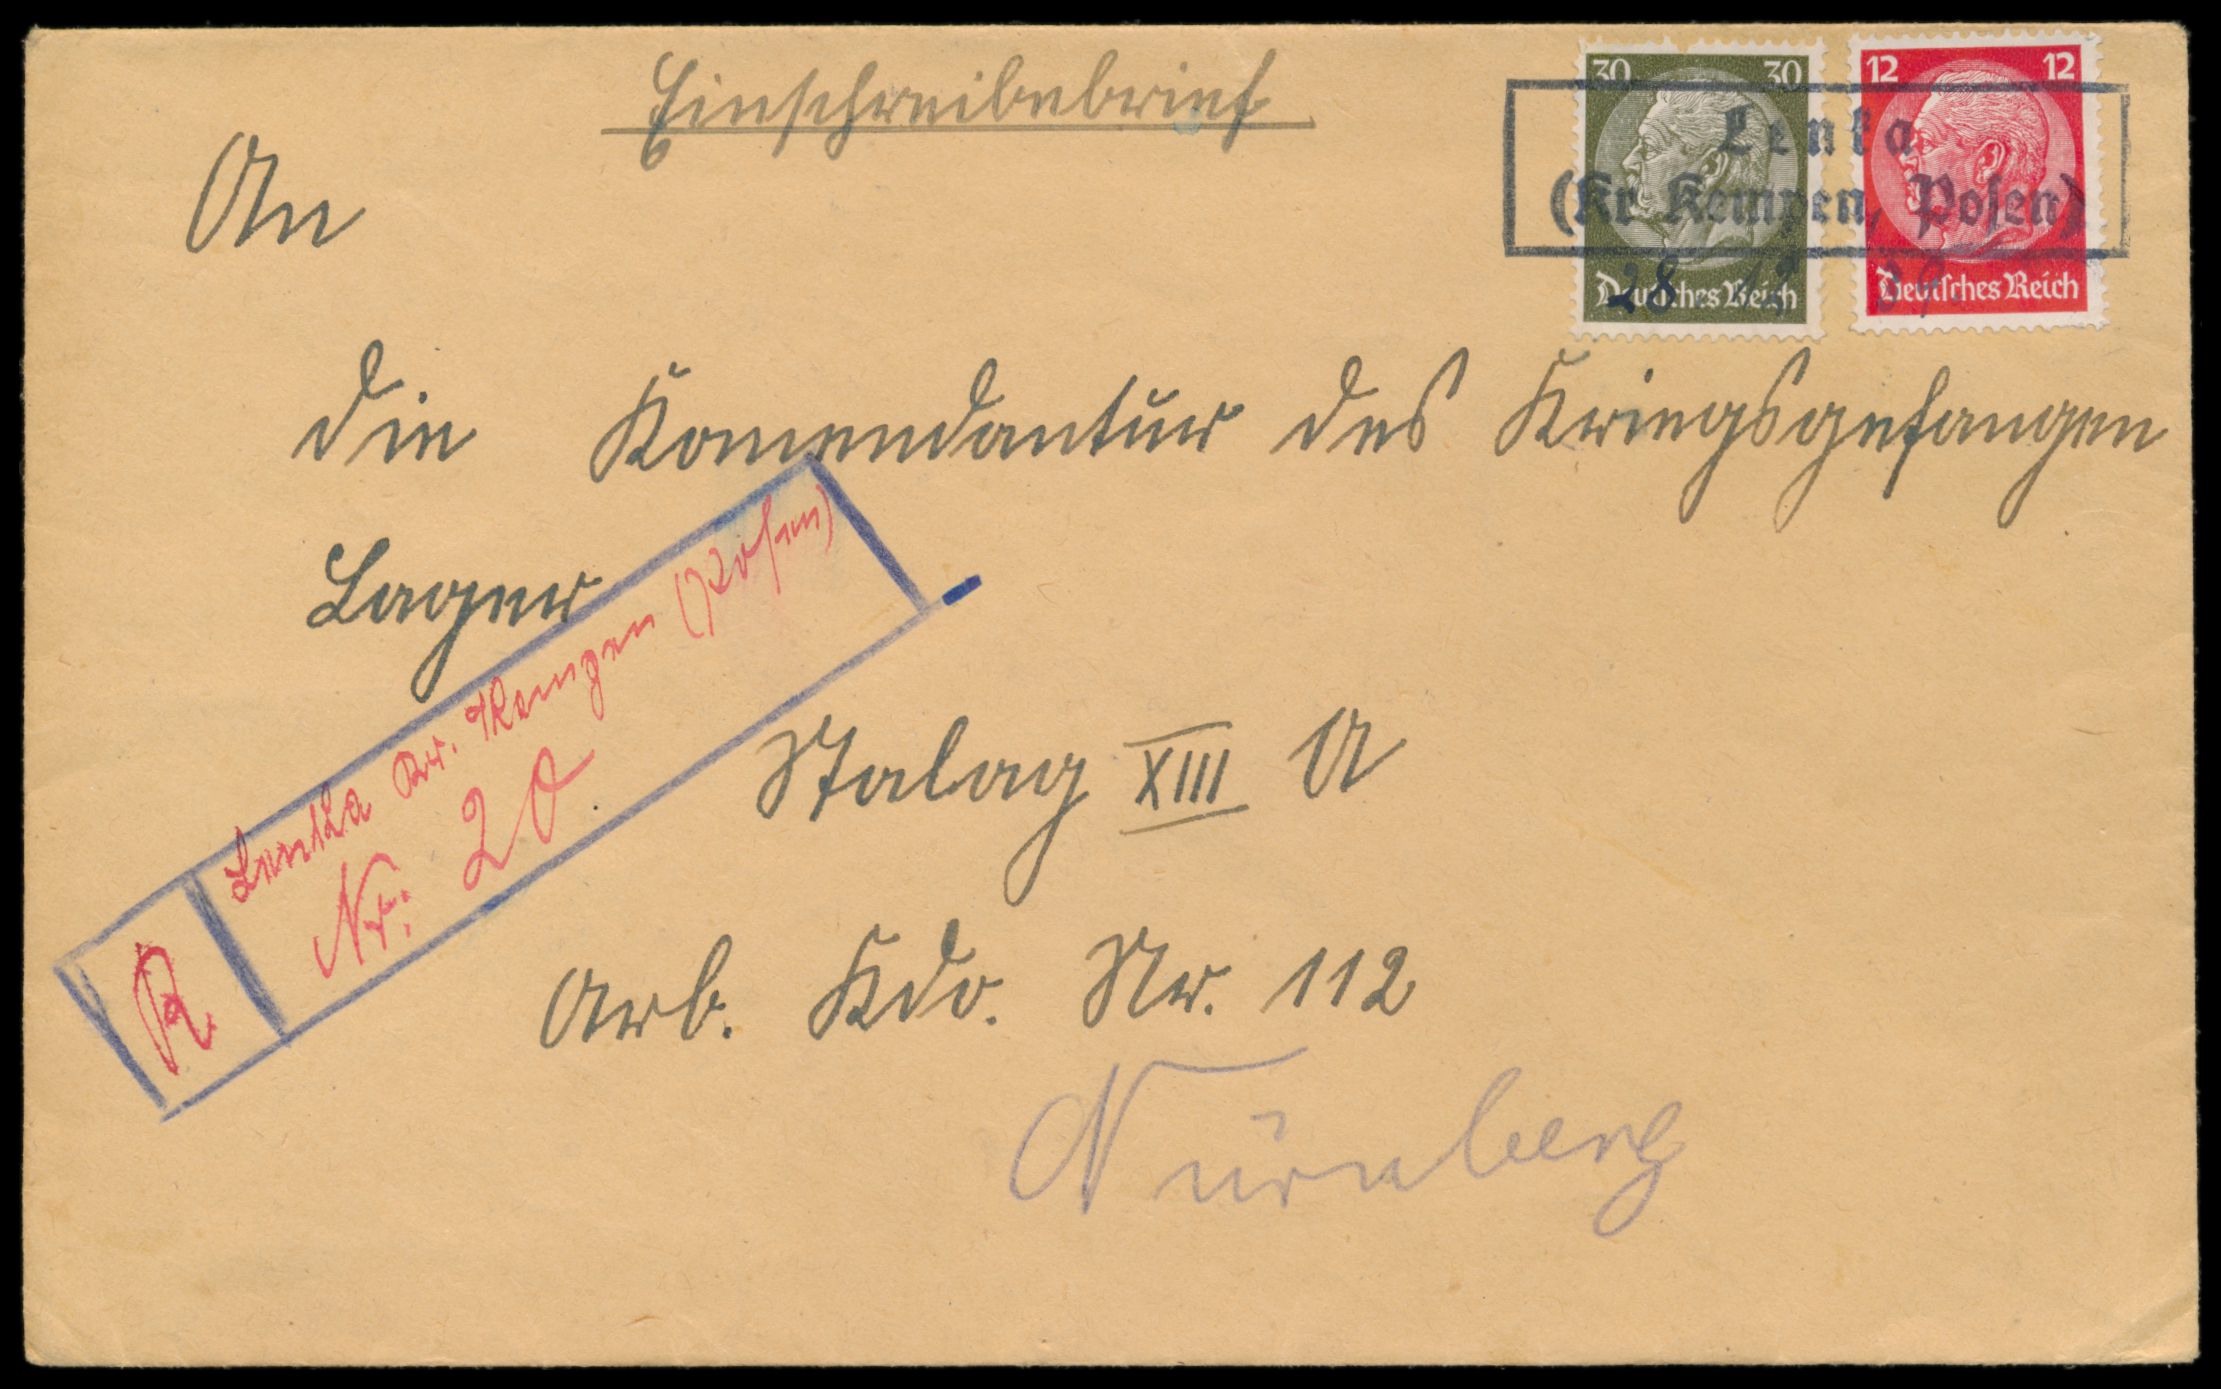 Einschreibebrief
30 30
12 12
Lenka
(Kr Kempen, Posen)
Deutsches Reich
Deutsches Reich
28. 12. 39.
An
die Komendantur des Kriegsgefangen
Lager
Stalag XIII A
Arb. Kdo. Nr. 112
Nürnberg
R
Lentka Kr. Kempen (Posen)
Nr: 20